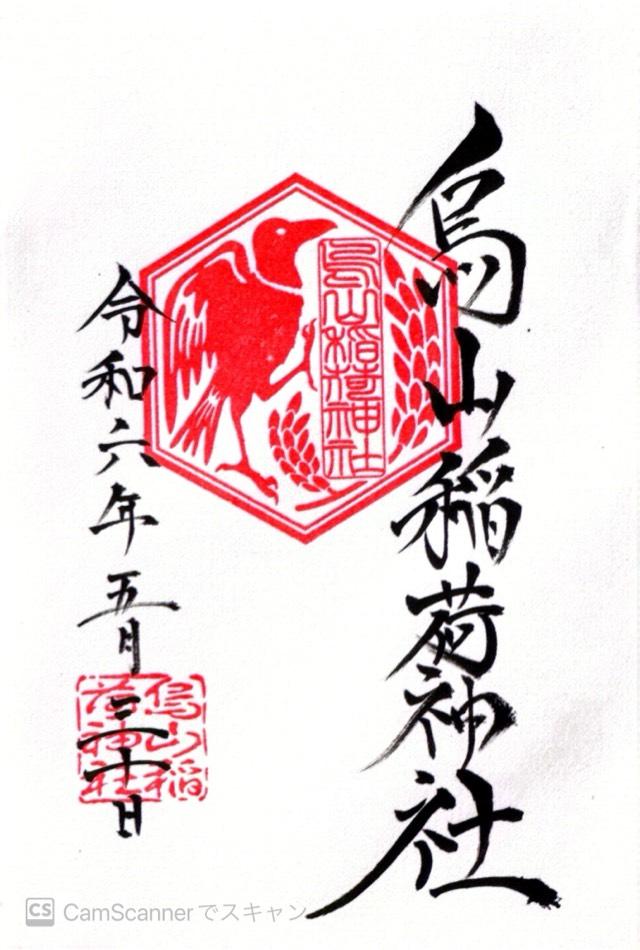 烏山稲荷神社
烏山稲荷神社
令和六年五月三十日
烏山稲
荷神社
CS CamScannerでスキャン